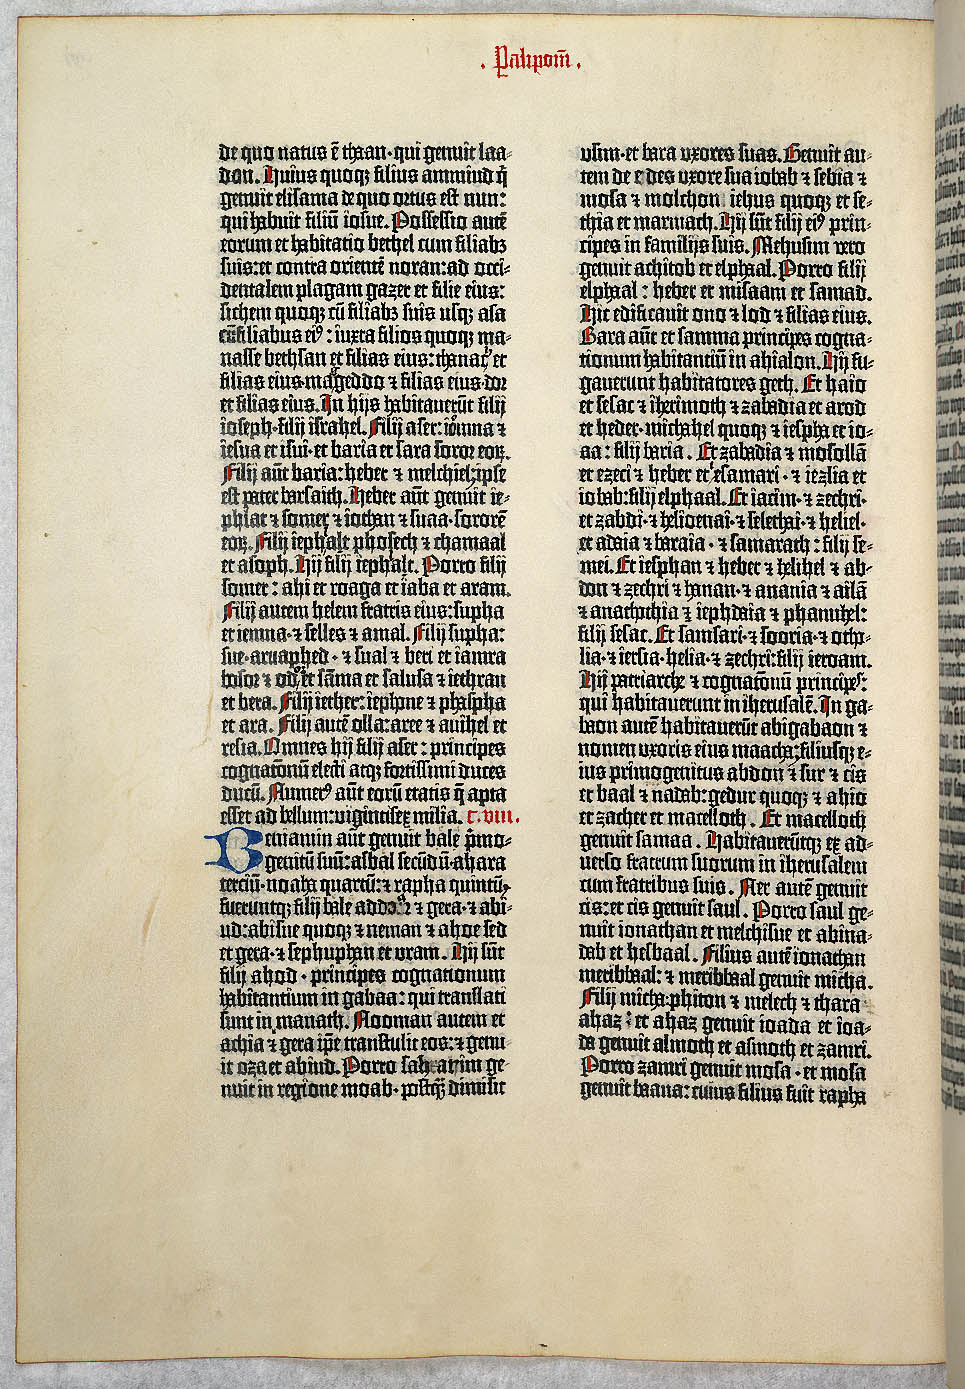 . Palipom̄ .
de quo natus ē thaan·qui genuit laa-
don. Huius quoqꝫ filius ammiud q̄
genuit elisama de quo ortus est nun:
qui habuit filiū iosue. Possessio autē
eorum et habitatio bethel cum filiabꝫ
suis: et contra orientē noran: ad occi-
dentalem plagam gazer et filie eius:
sichem quoqꝫ cū filiabꝫ suis usqꝫ asa
cū filiabus eiꝰ: iuxta filios quoqꝫ ma-
nasse bethsan et filias eius: thanach et
filias eius·mageddo ⁊ filias eius·dor
et filias eius. In hijs habitauerūt filij
ioseph·filij israhel. Filij aser: iomna ⁊
iesua et isui·et baria et sara soror eoꝝ.
Filij aūt baria: heber ⁊ melchiel: ipse
est pater barsaith. Heber aūt genuit ie-
phlat ⁊ somer ⁊ iothan ⁊ suaa·sororē
eoꝝ. Filij iephalt phosech ⁊ chamaal
et asoph. Hij filij iephalt. Porro filij
somer: ahi et roaga et iaba et aram.
Filij autem helem fratris eius: supha
et iemna·⁊ selles ⁊ amal. Filij supha:
sue·arnaphed·⁊ sual ⁊ beri et iamra
bosor ⁊ od et sāma et salusa ⁊ iethran
et bera. Filij iether: iephone ⁊ phaspha
et ara. Filij autē olla: aree ⁊ anihel et
resia. Omnes hij filij aser: principes
cognatōnū electi atqꝫ fortissimi duces
ducū. Numerꝰ aūt eorū etatis q̄ apta
esset ad bellum: vigintisex milia. C. viii.
Beniamin aūt genuit bale p̄mo-
genitū suū: asbal secūdū·ahara
terciū·noaha quartū: ⁊ rapha quintū.
fueruntqꝫ filij bale addoar ⁊ gera·⁊ abi-
ud: abisue quoqꝫ ⁊ neman ⁊ ahoe sed
et gera·⁊ sephuphan et uram. Hij sūt
filij ahod·principes cognationum
habitantium in gabaa: qui translati
sunt in manath. Nooman autem et
achia ⁊ gera ip̄e transtulit eos: ⁊ genu-
it oza et ahiud. Porro saharaim ge-
nuit in regione moab·postqꝫ dimisit
vsim·et bara vxores suas. Genuit au-
tem de edes vxore sua iobab ⁊ sebia ⁊
mosa ⁊ molchon iehus quoqꝫ et se-
chia et marmach. Hij sūt filij eiꝰ prin-
cipes in familijs suis. Mehusim vero
genuit achitob et elphaal. Porro filij
elphaal: heber et misaam et samad.
Hic edificauit ono ⁊ lod ⁊ filias eius.
Bara aūt et samma principes cogna-
tionum habitantiū in ahialon. Hij fu-
gauerunt habitatores geth. Et haio
et sesac ⁊ iherimoth ⁊ zabadia et arod
et heder·michahel quoqꝫ ⁊ iespha et io-
aa: filij baria. Et zabadia ⁊ mosollā
et ezeci ⁊ heber et esamari·⁊ iezlia et
iobab: filij elphaal. Et iacim·⁊ zechri·
et zabdi·⁊ helioenai·⁊ selethai·⁊ heliel·
et adaia ⁊ baraia·⁊ samarath: filij se-
mei. Et iesphan ⁊ heber ⁊ helihel ⁊ ab-
don ⁊ zechri ⁊ hanan·⁊ anania ⁊ ailā
⁊ anathothia ⁊ iephdaia ⁊ phanuhel:
filij sesac. Et samsari·⁊ sooria·⁊ otho-
lia·⁊ iersia·helia·⁊ zechri: filij ieroam.
Hij patriarche ⁊ cognatōnū principes:
qui habitauerunt in iherusalē. In ga-
baon autē habitauerūt abigabaon ⁊
nomen vxoris eius maacha: filiusqꝫ e-
ius primogenitus abdon ⁊ sur ⁊ cis
et baal ⁊ nadab: gedur quoqꝫ ⁊ ahio
et zacher et macelloth. Et macelloth
genuit samaa. Habitauerūtqꝫ ex ad-
uerso fratrum suorum in iherusalem
cum fratribus suis. Ner autē genuit
cis: et cis genuit saul. Porro saul ge-
nuit ionathan et melchisue et abina-
dab et hesbaal. Filius autē ionathan
meribbaal: ⁊ meribbaal genuit micha.
Filij micha: phiton ⁊ melech ⁊ thara
ahaz: et ahaz genuit ioada et ioa-
da genuit almoth et asmoth et zamri.
Porro zamri genuit mosa·et mosa
genuit baana: cuius filius fuit rapha